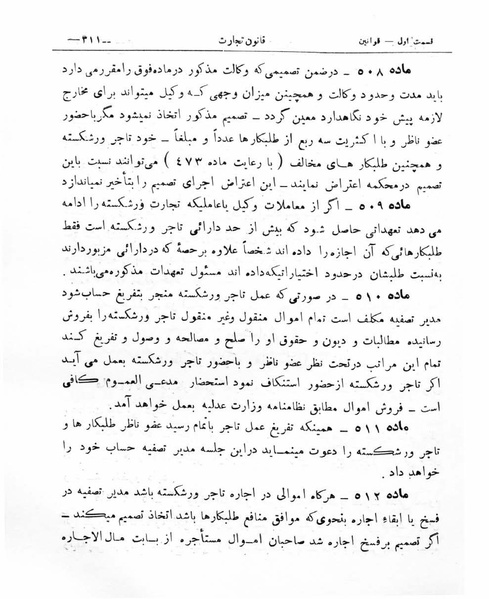 قسمت اول — قوانین قانون تجارت —۳۱۱—
ماده ۵۰۸ — درضمن تصمیمی که وکالت مذکور درماده فوق را مقرر می دارد
باید مدت وحدود وکالت و همچنین میزان وجهی کـه وکیل میتواند برای مخارج
لازمه پیش خود نگاهدارد معین گردد — تصمیم مذکور اتخاذ نمیشود مگر باحضور
عضو ناظر و با اکثریت سه ربع از طلبکارها عدداً و مبلغاً — خود تاجر ورشکسته
و همچنین طلبکار های مخالف ( با رعایت ماده ۴۷۳ ) می توانند نسبت باین
تصمیم درمحکمه اعتراض نمایند — این اعتراض اجرای تصمیم را بتأخیر نمیاندازد
ماده ۵۰۹ — اگر از معاملات وکیل یاعاملیکه تجارت ورشکسته را ادامه
می دهد تعهداتی حاصل شود که بیش از حد دارائی تاجر ورشکسته است فقط
طلبکارهائی که آن اجازه را داده اند شخصاً علاوه برحصهٔ که دردارائی مزبوردارند
به نسبت طلبشان درحدود اختیاراتیکه داده اند مسئول تعهدات مذکوره می باشند .
ماده ۵۱۰ — در صورتی که عمل تاجر ورشکسته منجر بتفریغ حساب شود
مدیر تصفیه مکلف است تمام اموال منقول وغیر منقول تاجر ورشکسته را بفروش
رسانیده مطالبات و دیون و حقوق او را صلح و مصالحه و وصول و تفریغ کنـد
تمام این مراتب درتحت نظر عضو ناظر و باحضور تاجر ورشکسته بعمل می آید
اگر تاجر ورشکسته ازحضور استنکاف نمود استحضار مدعـی العمـوم کافی
است — فروش اموال مطابق نظامنامه وزارت عدلیه بعمل خواهد آمد.
ماده ۵۱۱ — همینکه تفریغ عمل تاجر باتمام رسید عضو ناظر طلبکار ها و
تاجر ورشکسته را دعوت مینمـاید دراین جلسه مدیر تصفیه حساب خود را
خواهد داد .
ماده ۵۱۲ — هرگاه اموالی در اجاره تاجر ورشکسته باشد مدیر تصفیه در
فسخ یا ابقاء اجاره بنحوی که موافق منافع طلبکارها باشد اتخاذ تصمیم میکنـد —
اگر تصمیم برفسخ اجاره شد صاحبان امـوال مستأجره از بـابت مـال الاجاره